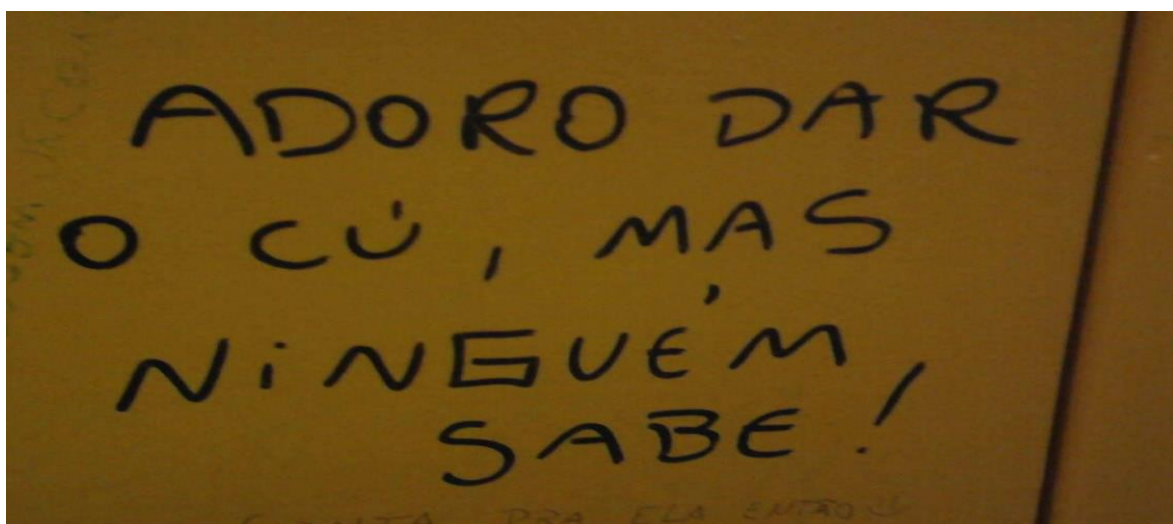 ADORO DAR
O CÚ, MAS
NiNGUÉM,
SABE!
PRA ELA ENTÃO